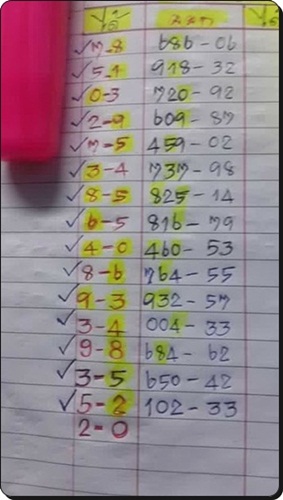 7-8 686-06
5-1 918-32
0-3 720-92
2-9 609-87
7-5 459-02
3-4 737-98
8-5 825-14
6-5 816-79
4-0 460-53
8-6 764-55
9-3 932-57
3-4 004-33
9-8 684-62
3-5 650-42
5-2 102-33
2-0